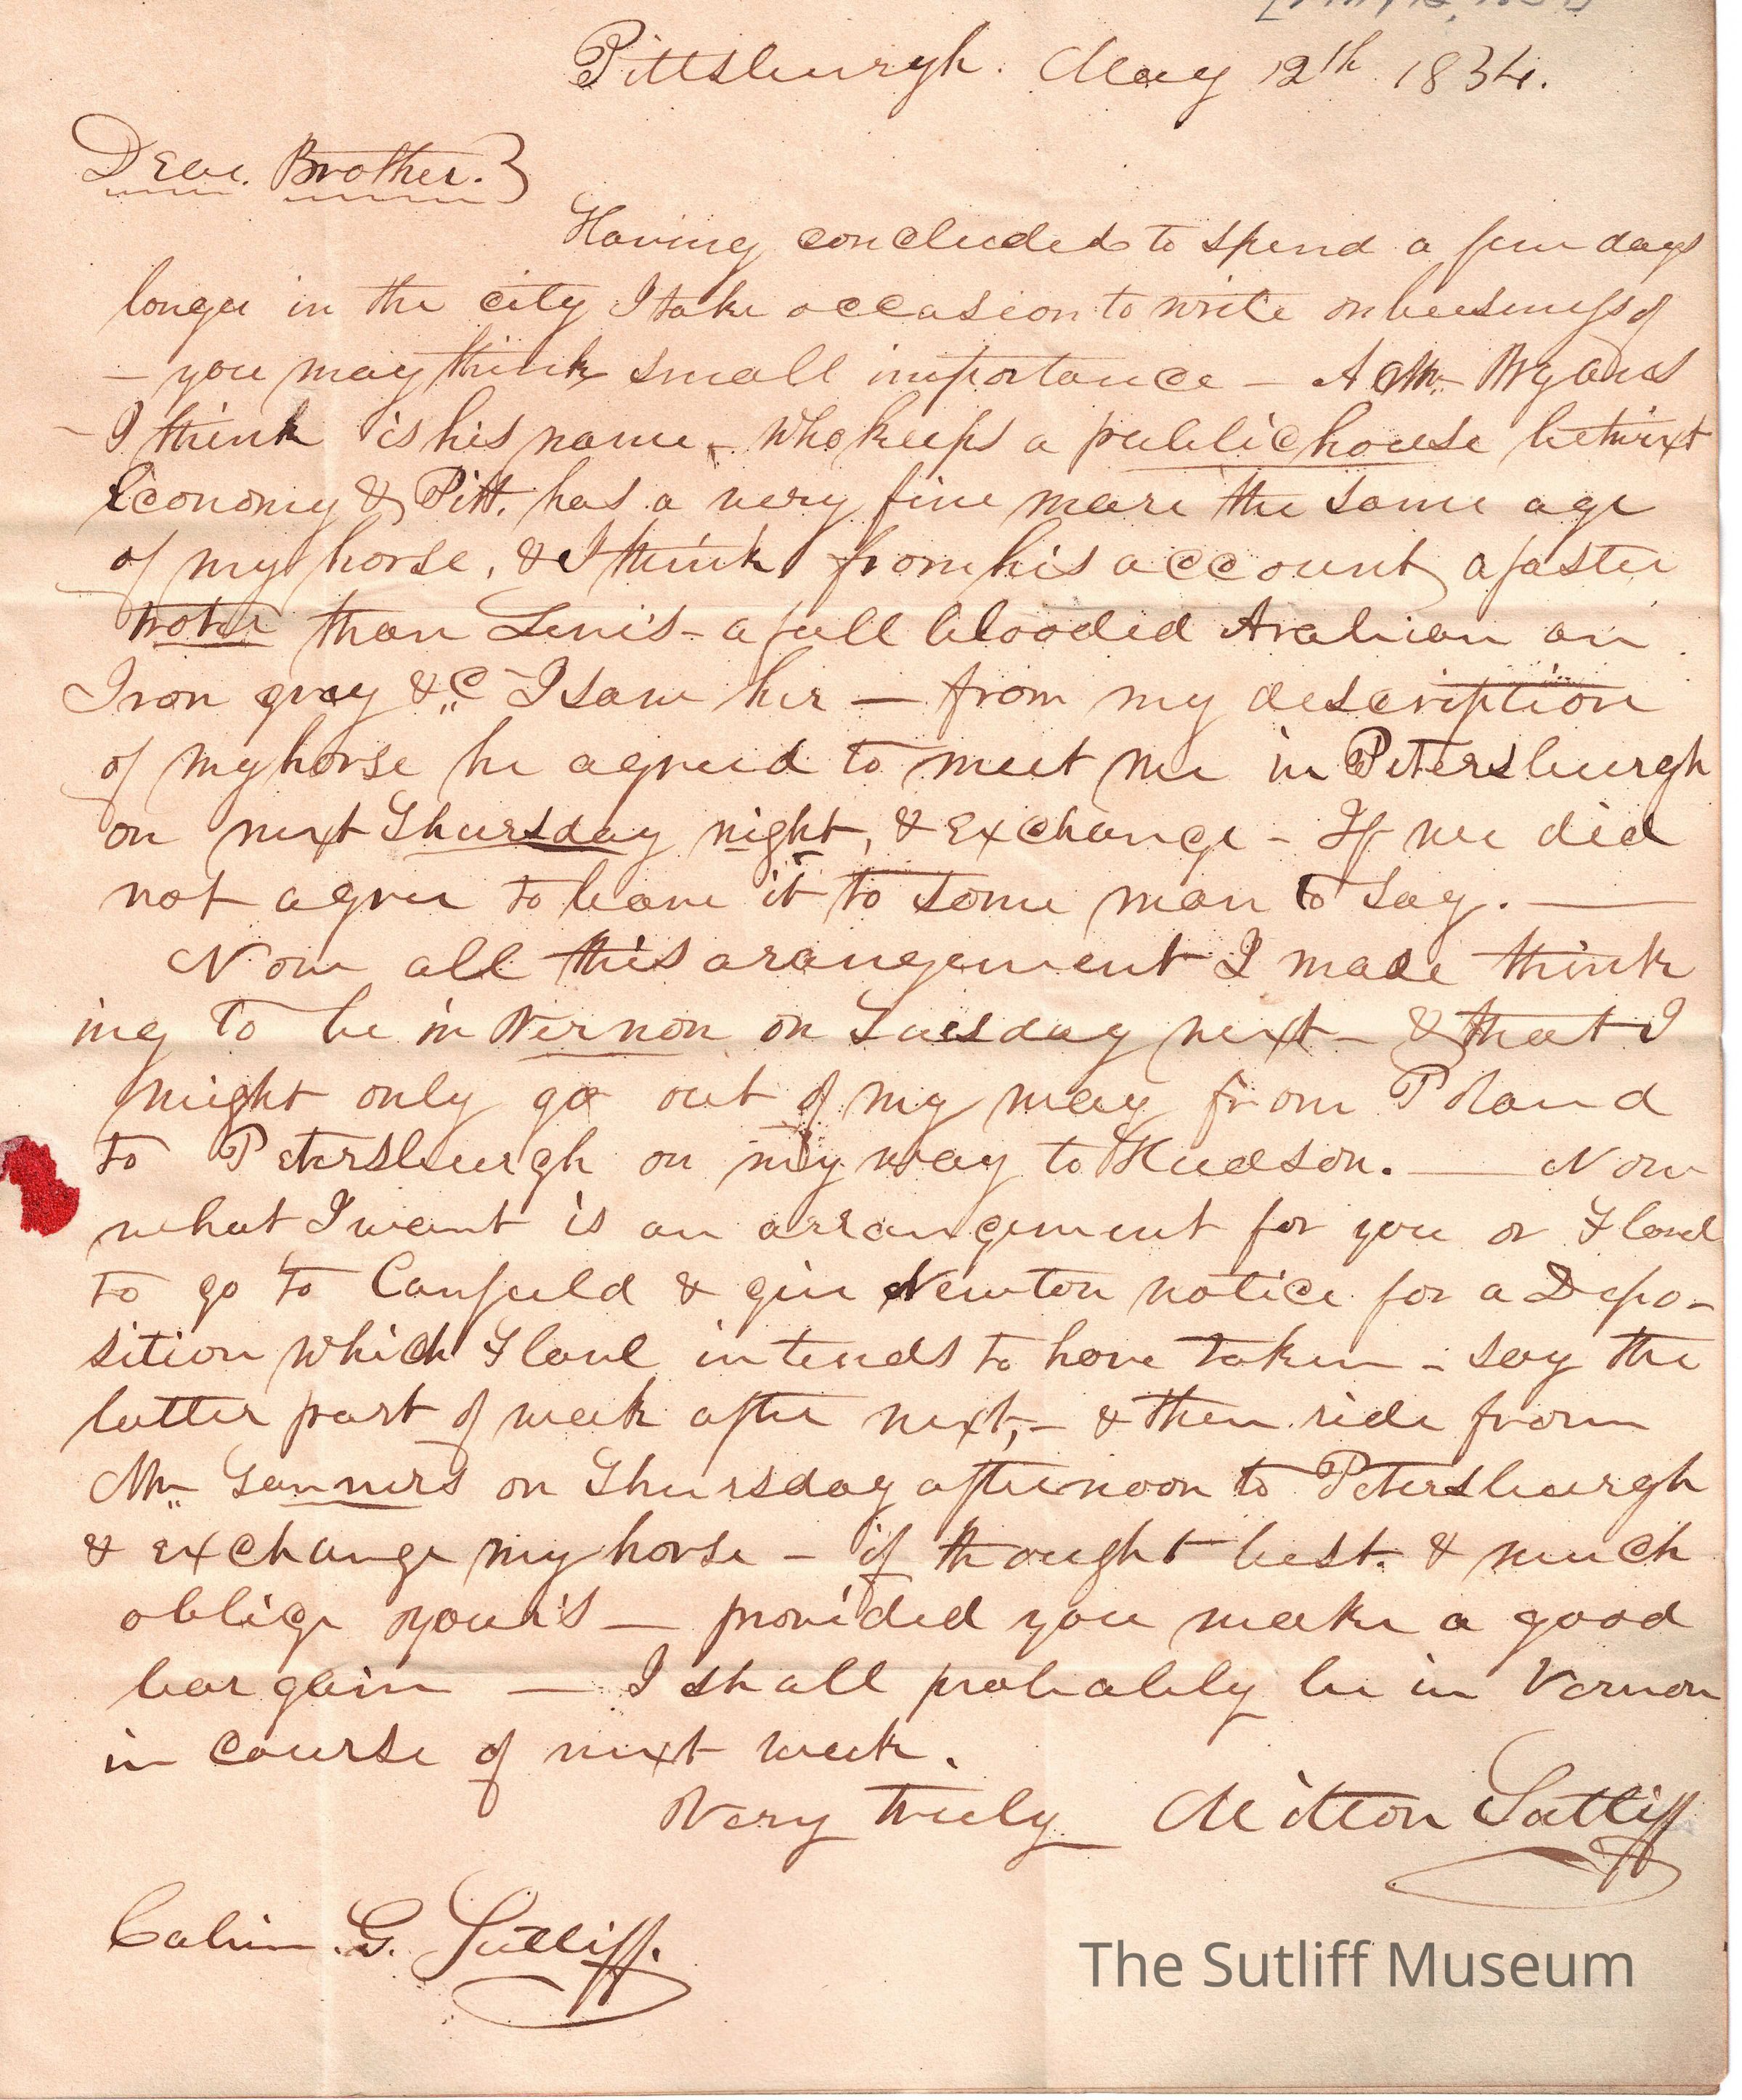 Pittsburgh. May 12th 1834.
Dear. Brother.
Having concluded to spend a few days
longer in the city I take occasion to write on business of
— you may think small importance — A Mr
— I think is his name — who keeps a public house betwixt
Economy & Pitt. has a very fine mare the same age
of my horse, & I think from his account a faster
troter than Lewis - a full blooded Arabian an
Iron gray &c I saw her — from my description
of my horse he agreed to meet me in Petersburgh
on next Thursday night, & exchange - If we did
not agree to leave it to some man to say. —
Now all this arangement I made think
ing to be in Vernon on Tuesday next - & that I
might only go out of my way from Poland
to Petersburgh on my way to Hudson. — Now
what I want is an arrangement for you or
to go to Canfield & give Newton notice for a Depo-
sition which intends to have taken - say the
latter part of week after next, - & then ride from
Mr on Thursday afternoon to Petersburgh
& exchange my horse - if thought best. & much
oblige your's — provided you make a good
bargain — I shall probably be in Vernon
in course of next week.
Very truly Milton Sutliff
Calvin. G. Sutliff.
The Sutliff Museum